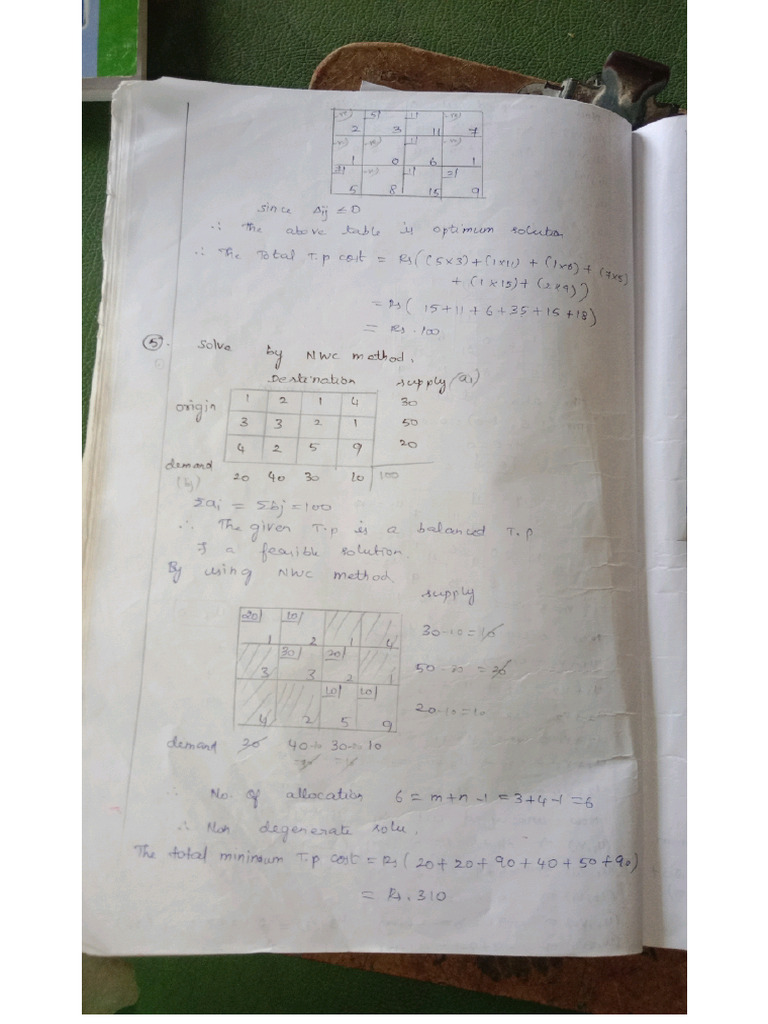 2 3 11 7
1 0 6 1
5 8 15 9
since Δij ≤ 0
∴ The above table is optimum solution
∴ The Total T.p cost = Rs((5×3)+(1×11)+(1×6)+(7×5)
+(1×15)+(2×9))
= Rs(15+11+6+35+15+18)
= Rs.100
5. Solve by NWC method.
Destination supply(ai)
origin 1 2 1 4 30
3 3 2 1 50
4 2 5 9 20
demand 20 40 30 10 100
(bj)
Σai = Σbj = 100
∴ The given T.p is a balanced T.p
∃ a feasible solution.
By using NWC method.
supply
20 10
1 2 1 4 30-10=10
30 20
3 3 2 1
10 10
4 2 5 9 20-10=10
demand
∴ No. Of allocation 6 = m+n-1 = 3+4-1 = 6
∴ Non degenerate solu.
The total minimum T.p cost = Rs(20+20+90+40+50+90)
= Rs.310